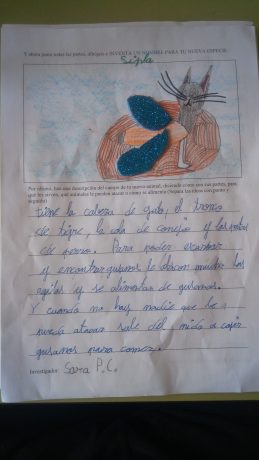 Y ahora junta todas las partes, dibújalo e INVENTA UN NOMBRE PARA TU NUEVA ESPECIE.
Sipla
Por último, haz una descripción del cuerpo de tu nuevo animal, diciendo cómo son sus partes, para
qué les sirven, qué animales le pueden atacar o cómo se alimenta (Separa las ideas con punto y
seguido)
tiene la cabeza de gato, el tronco
de tigre, la cola de conejo y las patas
de perro. Para poder escuchar
y encontrar gusanos le atacan mucho las
águilas y se alimentan de gusanos.
Y cuando no hay nadie que le
pueda atacar sale del nido a cojer
gusanos para comer.
Investigador: Sara P.C.